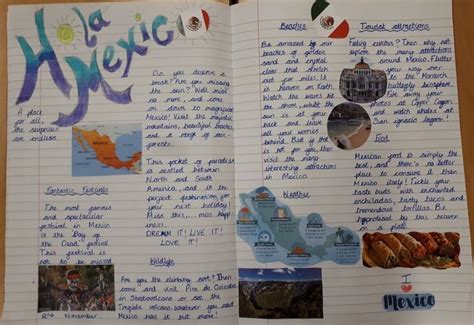 Hola
Mexico
A place
for all,
the surprises
are million
Fantastic Festivals
The most famous
and spectacular
festival in Mexico
is the Day of
the Dead festival.
This festival is
not to be missed
2nd November.
Do you deserve a
break? Are you missing
the sun? Well miss
no more, and come
on down to magnificent
Mexico! Visit the majestic
mountains, beautiful beaches
and a range of rain-
forests.
This pocket of paradise
is nestled between
North and South
America, and is the
perfect getaway for
your next holiday!
Miss this, miss happ-
iness.
DREAM IT! LIVE IT!
LOVE IT!
Wildlife
Are you the climbing sort? Then
come and visit Pico de Orizaba
in Stratovolcano or see the
volcano. Whatever you need
Mexico has it but more!
Beaches
Be amazed by our
beaches of golden
sand and crystal
clear that stretch
out for miles. Is
a heaven on Earth
Watch the waves hit
the shore, whilst the
sun is at your
back and leave
all your worries
behind. But if this
is not for you, then
visit the many
interesting attractions
in Mexico.
Weather
Tourist attractions
Feeling curious? Then why not
explore the many attractions
around Mexico. Flutter
your way over
to the Monarch
butterfly biosphere.
away your
photos at Copper Canyon
and watch whales at
san ignacio lagoon!
Food
Mexican food is simply the
best, and there's no better
place to consume it than
Mexico itself! Tickle your
taste buds with enchanted
enchiladas, tasty tacos and
tremendous tortillas. Be
hypnotised by this heaven
on a plate.
I
Mexico